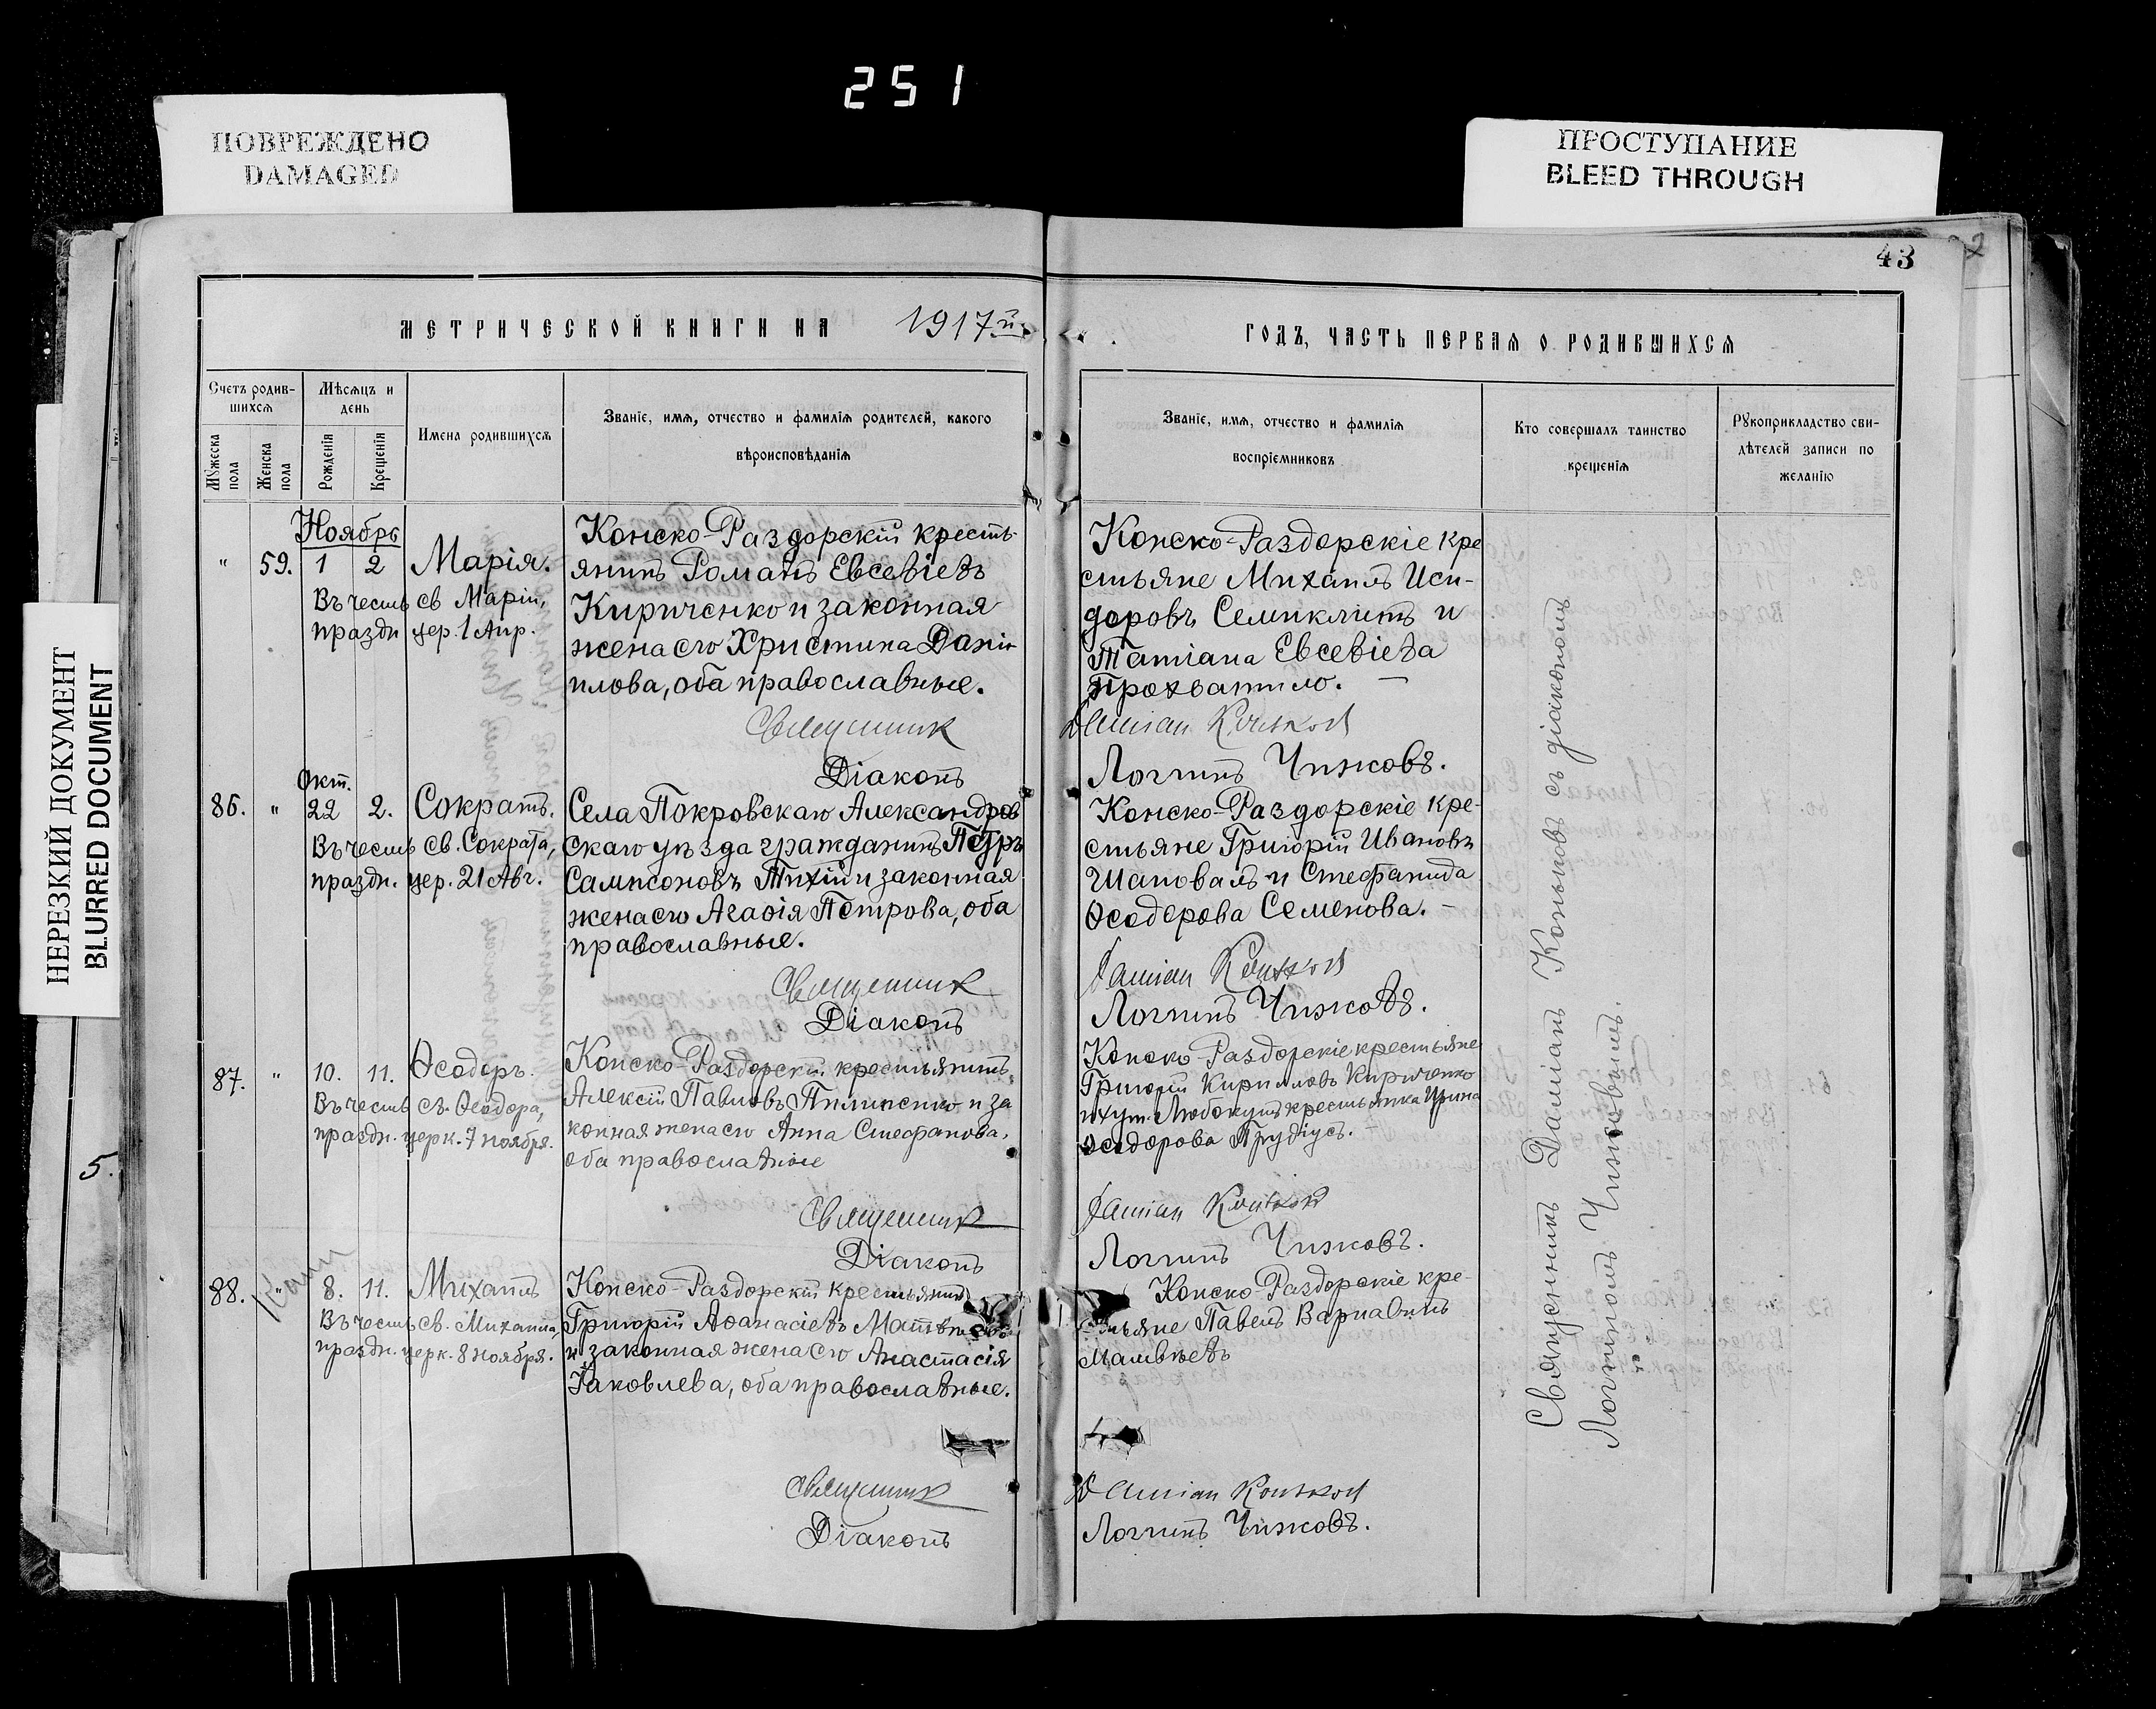 251
ПОВРЕЖДЕНО
DAMAGED
ПРОСТУПАНИЕ
BLEED THROUGH
НЕРЕЗКИЙ ДОКУМЕНТ
BLURRED DOCUMENT
5.
43
МЕТРИЧЕСКОЙ КНИГИ НА 1917й
ГОДЪ, ЧАСТЬ ПЕРВАЯ О РОДИВШИХСЯ
Счетъ родив-
шихся
Мужеска пола
Женска пола
Мѣсяцъ и
день
Рожденія
Крещенія
Имена родившихся
Званіе, имя, отчество и фамилія родителей, какого
вѣроисповѣданія
Званіе, имя, отчество и фамилія
воспріемниковъ
Кто совершалъ таинство
крещенія
Рукоприкладство сви-
дѣтелей записи по
желанію
Ноябрь
" 59. 1 2 Марія.
Въ честь св Маріи,
праздн цер. 1 Апр.
Конско-Раздорскій кресть-
янинъ Романъ Евсевіевъ
Кириченко и законная
жена его Христина Дани-
илова, оба православные.
Священник
Діаконъ
Конско-Раздорскіе кре
стьяне Михаилъ Иси-
доровъ Семиклитъ и
Татіана Евсевіева
Прохватило. —
Damian Konskoff
Логгинъ Чижовъ.
Окт.
86. " 22 2. Сократъ.
Въ честь св. Сократа,
праздн. цер. 21 Авг.
Села Покровскаго Александров
скаго уѣзда гражданинъ Петръ
Сампсоновъ Тихій и законная
жена его Агаѳія Петрова, оба
православные.
Священник
Діаконъ
Конско-Раздорскіе кре-
стьяне Григорій Ивановъ
Шаповалъ и Стефанида
Ѳеодорова Семенова. —
Damian Konskoff
Логгинъ Чижовъ.
87. " 10. 11. Ѳеодоръ.
Въ честь св. Ѳеодора,
праздн. церк. 7 ноября.
Конско-Раздорскій крестьянинъ
Алексій Павловъ Пилипенко и за
конная жена его Анна Стефанова,
оба православные
Священник
Діаконъ
Конско-Раздорскіе крестьяне
Григорій Кирилловъ Кириченко
и хут. Любокутъ крестьянка Ирина
Ѳеодорова Прудіусъ. —
Damian Konskoff
Логгинъ Чижовъ.
88. " 8. 11. Михаилъ
Въ честь св. Михаила,
праздн. церк. 8 ноября.
Конско-Раздорскій крестьянинъ
Григорій Аѳанасіевъ Матвѣевъ
и законная жена его Анастасія
Іаковлева, оба православные.
Священник
Діаконъ
Конско-Раздорскіе кре-
стьяне Павелъ Варнавинъ
Матвѣевъ
Damian Konskoff
Логгинъ Чижовъ.
Священникъ Даміанъ Коньковъ съ діакономъ
Логгиномъ Чижовымъ.